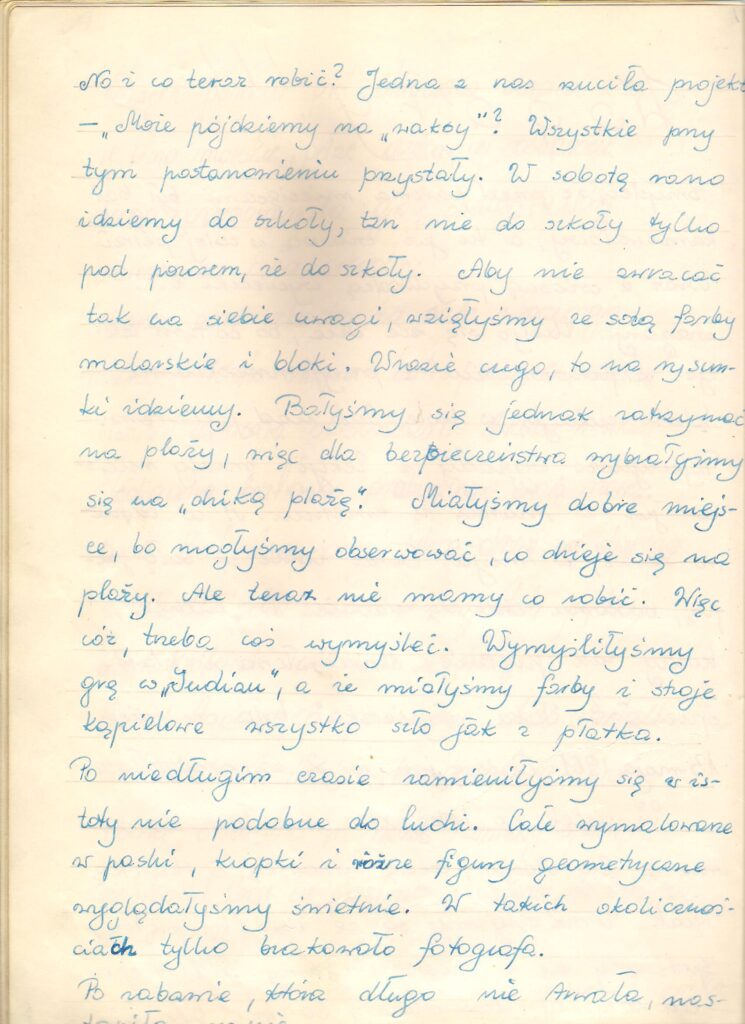 No i co teraz robić? Jedna z nas rzuciła projekt
– „Może pójdziemy na „waksy"? Wszystkie przy
tym postanowieniu przystały. W sobotą rano
idziemy do szkoły, tzn nie do szkoły tylko
pod pozorem, że do szkoły. Aby nie zwracać
tak na siebie uwagi, wzięłyśmy ze sobą farby
malarskie i bloki. W razie czego, to na rysun-
ki idziemy. Bałyśmy się jednak zatrzymać
na plaży, więc dla bezpieczeństwa wybrałyśmy
się na „dziką plażę". Miałyśmy dobre miejs-
ce, bo mogłyśmy obserwować, co dzieje się na
plaży. Ale teraz nie mamy co robić. Więc
cóż, trzeba coś wymyśleć. Wymyśliłyśmy
grę w „Indian", a że miałyśmy farby i stroje
kąpielowe wszystko szło jak z płatka.
Po niedługim czasie zamieniłyśmy się w is-
toty nie podobne do ludzi. Całe wymalowane
w paski, kropki i różne figury geometryczne
wyglądałyśmy świetnie. W takich okolicznoś-
ciach tylko brakowało fotografa.
Po zabawie, która długo nie trwała, nas-